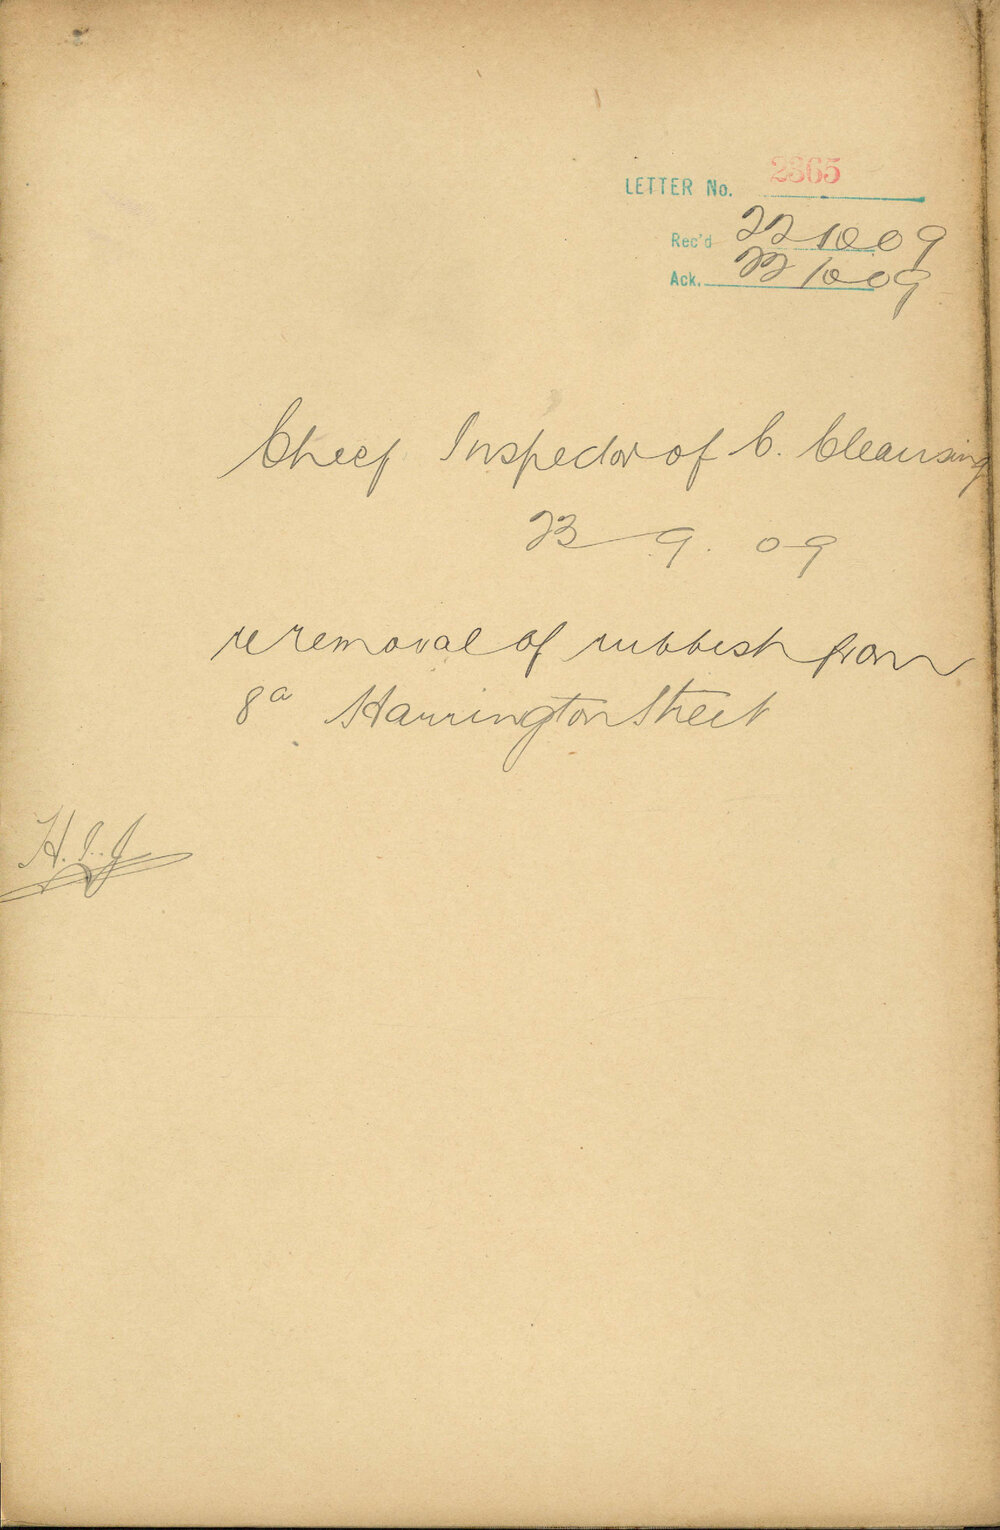 LETTER No. 2365
Rec'd 22 10 09
Ack. 22 10 09
Chief Inspector of C. Cleansing
23 9. 09
re removal of rubbish from
8a Harrington Street